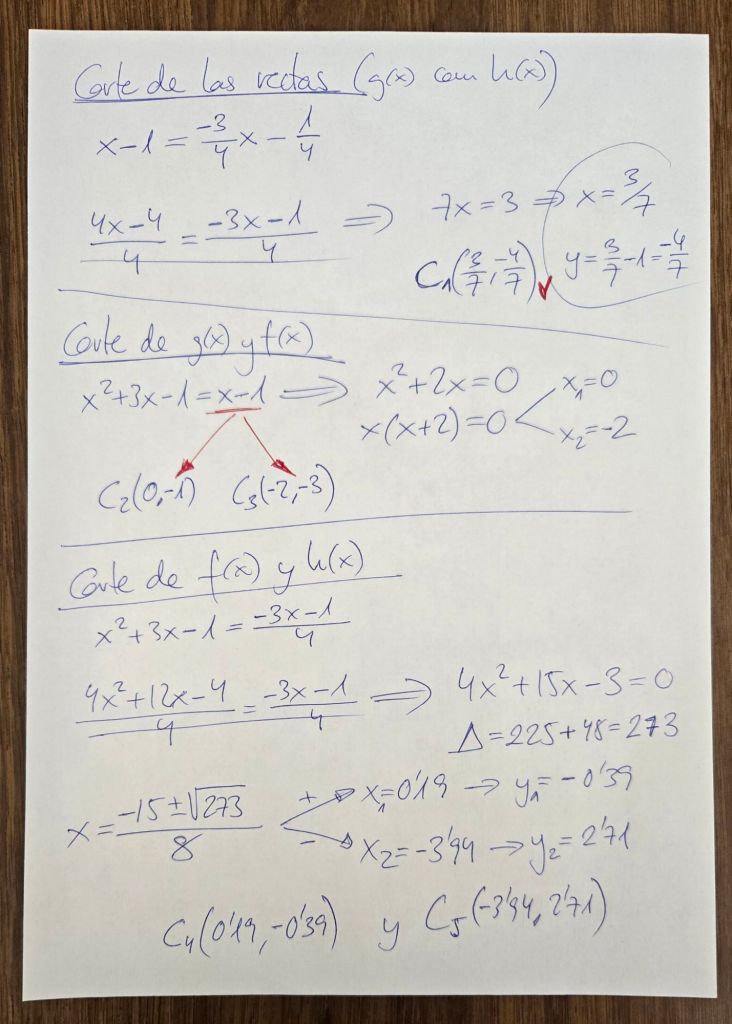 Corte de las rectas (g(x) com h(x))
x-1 = -3/4 x - 1/4
(4x-4)/4 = (-3x-1)/4 ⇒ 7x = 3 ⇒ x = 3/7
C₁(3/7, -4/7) y = 3/7 - 1 = -4/7
Corte de g(x) y f(x)
x²+3x-1 = x-1 ⇒ x²+2x = 0
x(x+2) = 0
x₁=0
x₂=-2
C₂(0,-1) C₃(-2,-3)
Corte de f(x) y h(x)
x²+3x-1 = (-3x-1)/4
(4x²+12x-4)/4 = (-3x-1)/4 ⇒ 4x²+15x-3=0
Δ=225+48=273
x = (-15±√273)/8
+ x₁=0'19 → y₁=-0'39
- x₂=-3'94 → y₂=2'71
C₄(0'19,-0'39) y C₅(-3'94, 2'71)